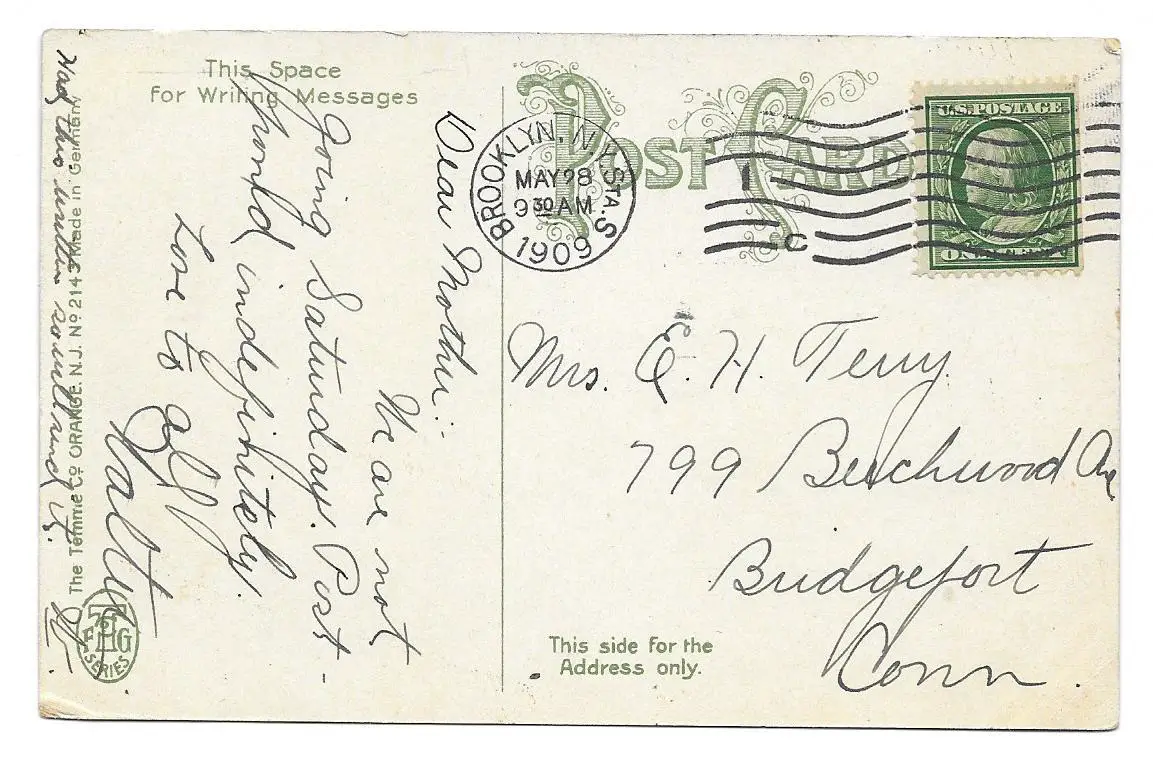 This Space
for Writing Messages
Dear Mother:
We are not
going Saturday. Post-
poned indefinitely.
Love to all
Walter
Had this written so will send it.
The Temme Co. ORANGE, N.J. No 2143 Made in Germany
76
F H G
SERIES
POST CARD
BROOKLYN. N.Y. STA. S
MAY 28
9 30 AM
1909
1
C
U.S. POSTAGE
ONE CENT
Mrs. E. H. Terry.
799 Beechwood Ave
Bridgeport
Conn.
This side for the
Address only.